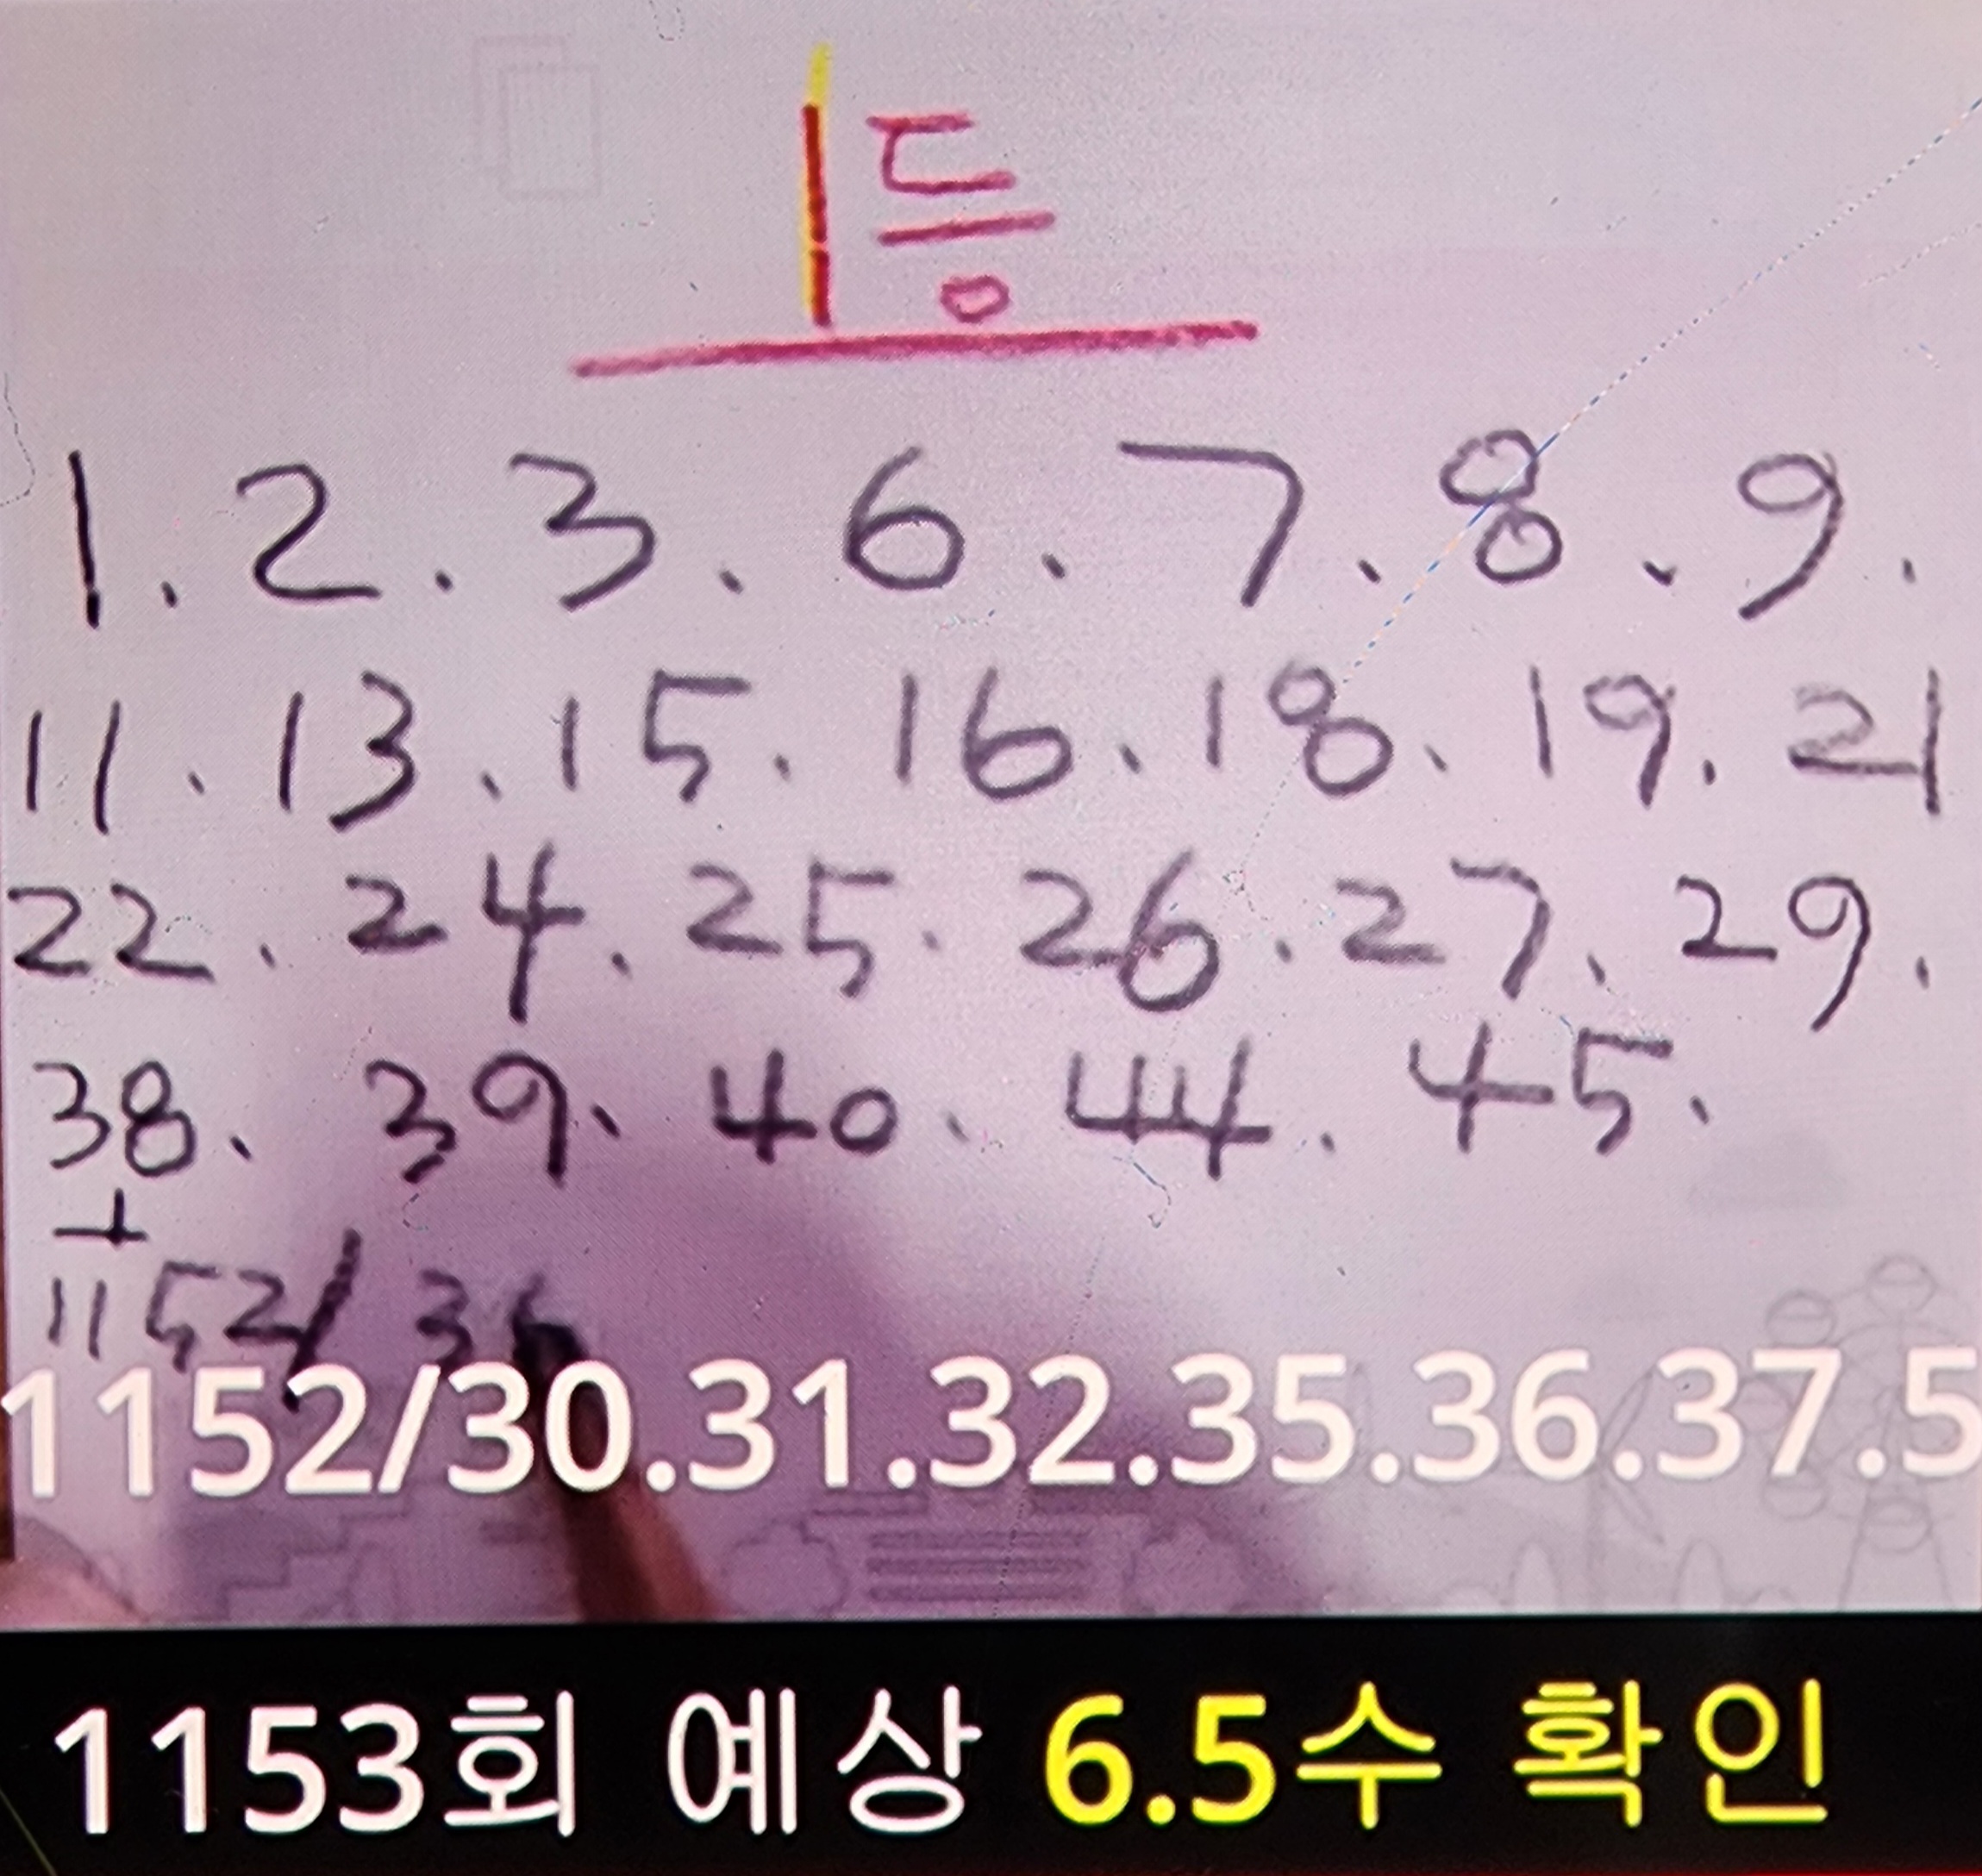 1등
1. 2. 3. 6. 7. 8. 9.
11. 13. 15. 16. 18. 19. 21
22. 24. 25. 26. 27. 29.
38. 39. 40. 44. 45.
+
1152/ 3
1152/30.31.32.35.36.37.5
1153회 예상 6.5수 확인